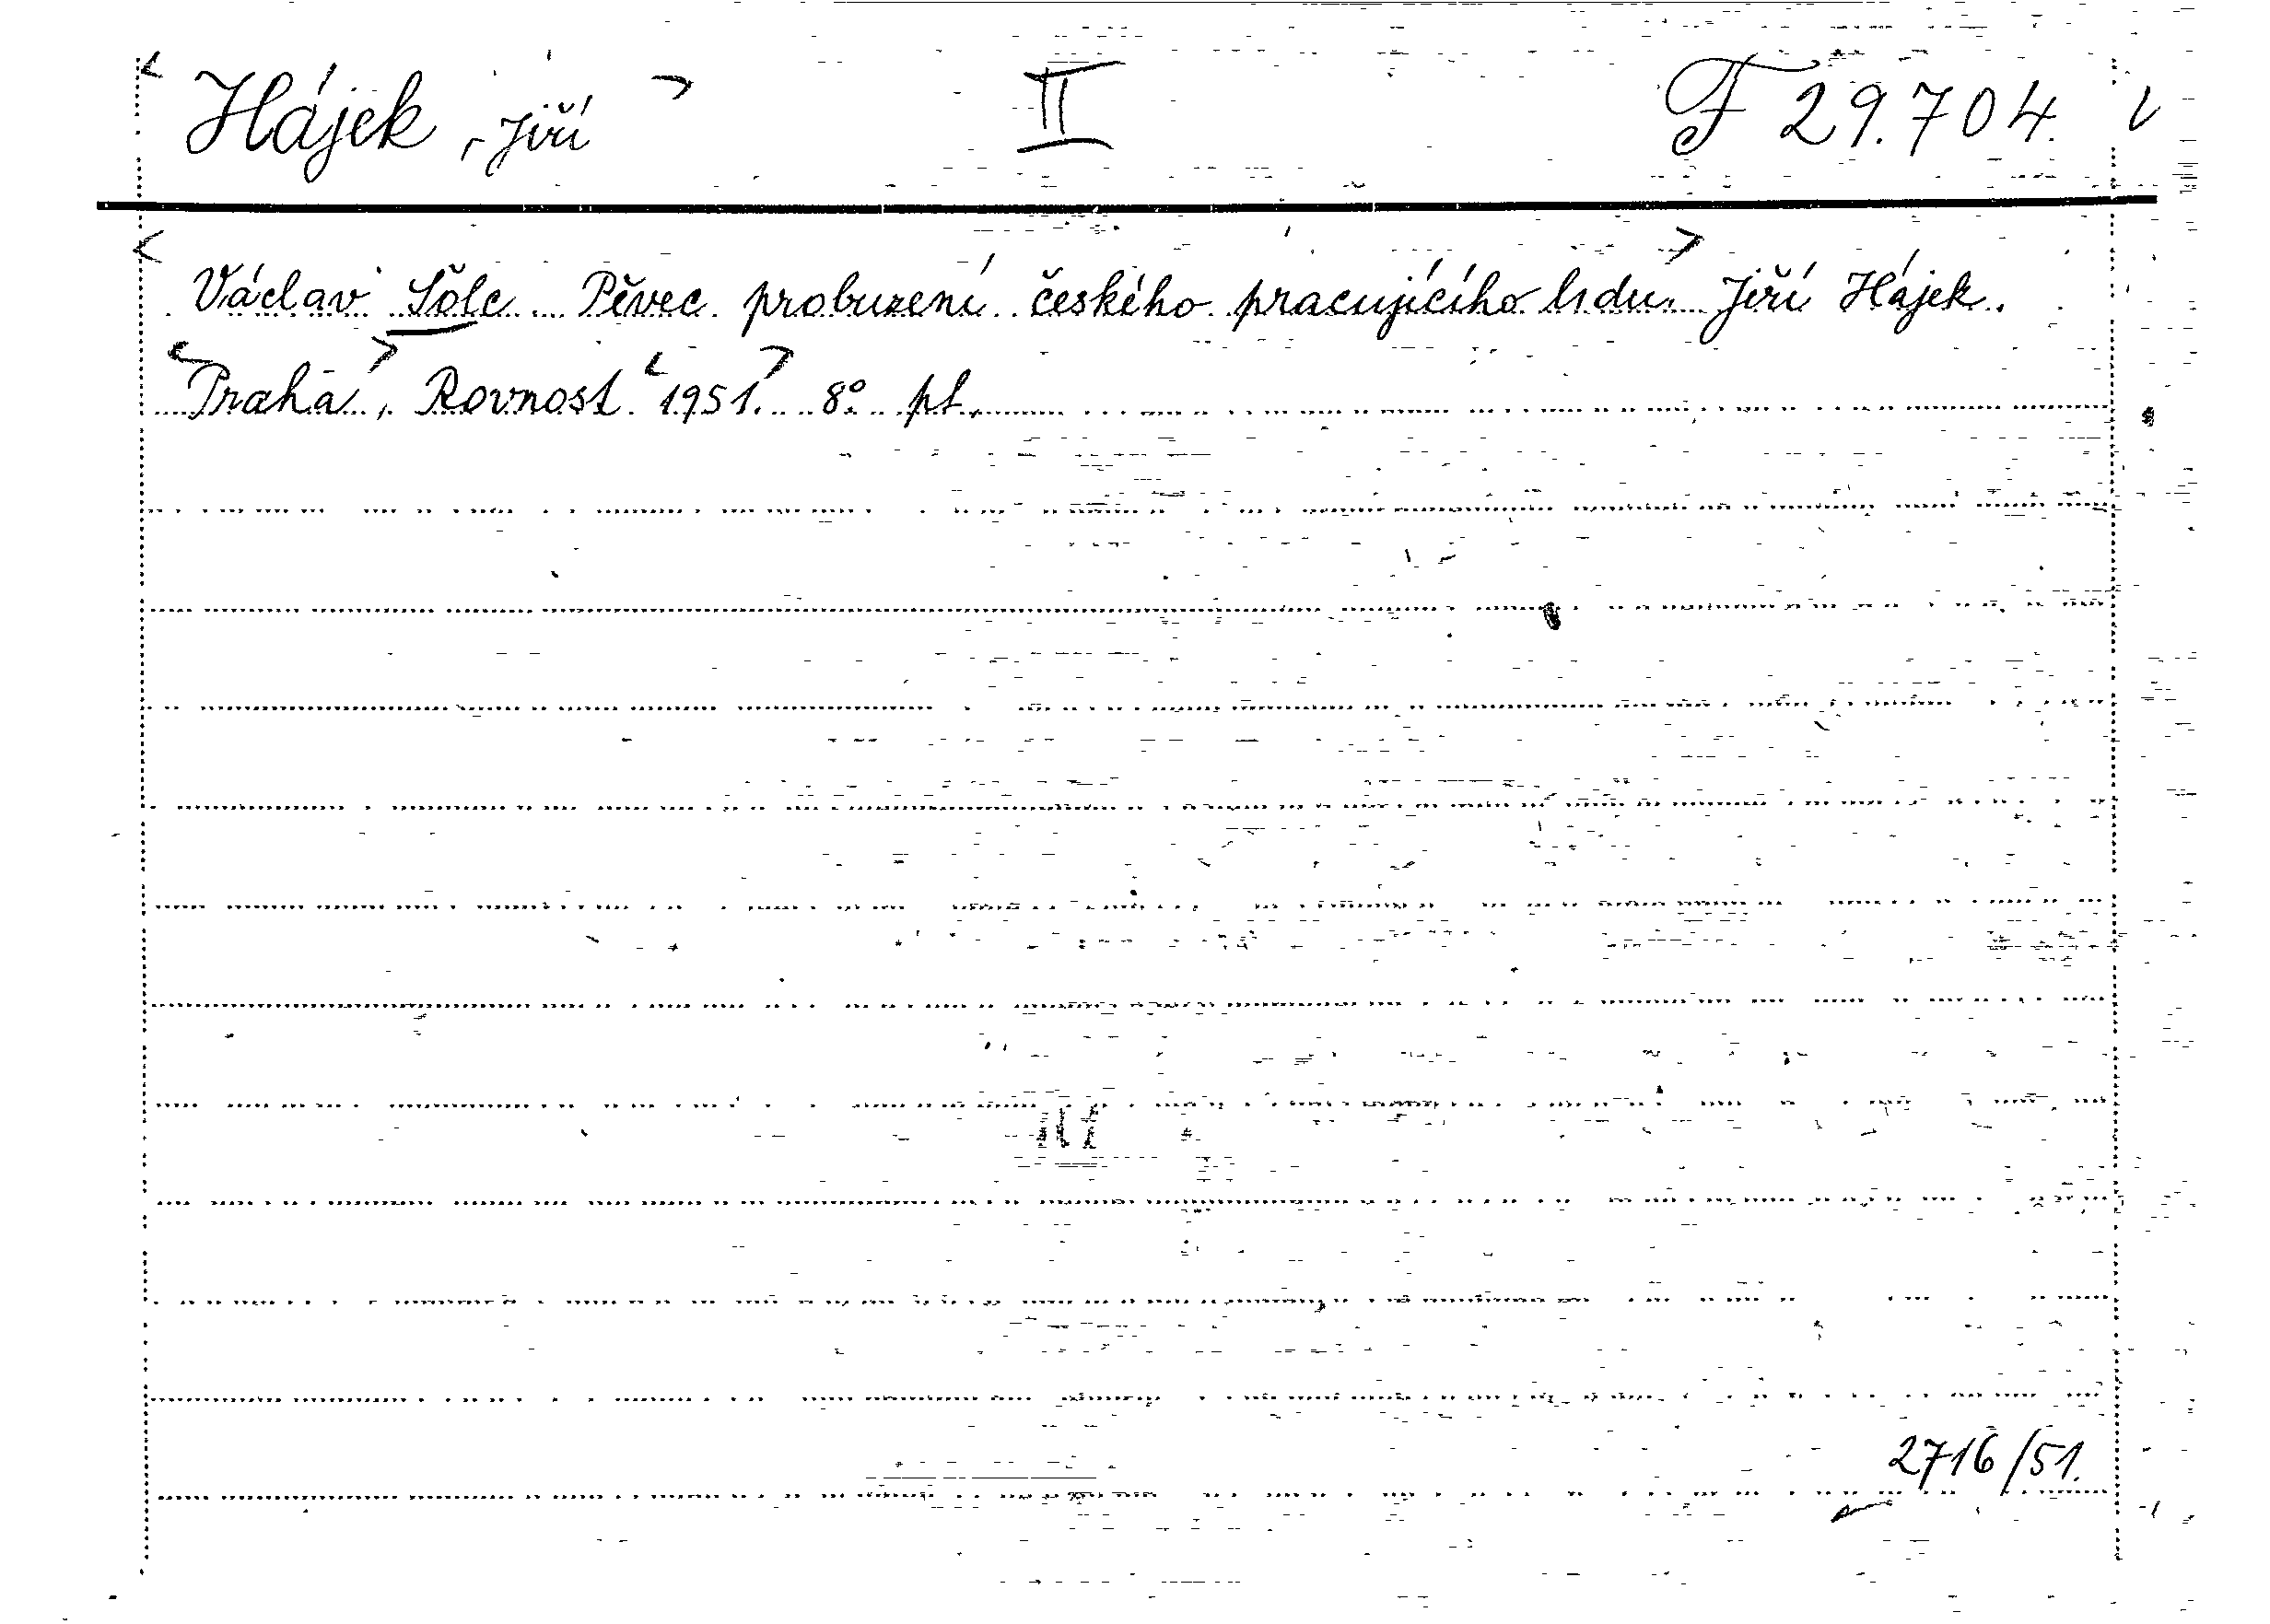 Hájek, Jiří II F 29.704.
Václav Šolc. Pěvec probuzení českého pracujícího lidu. Jiří Hájek.
Praha, Rovnost 1951. 8° pt.
2716/51.